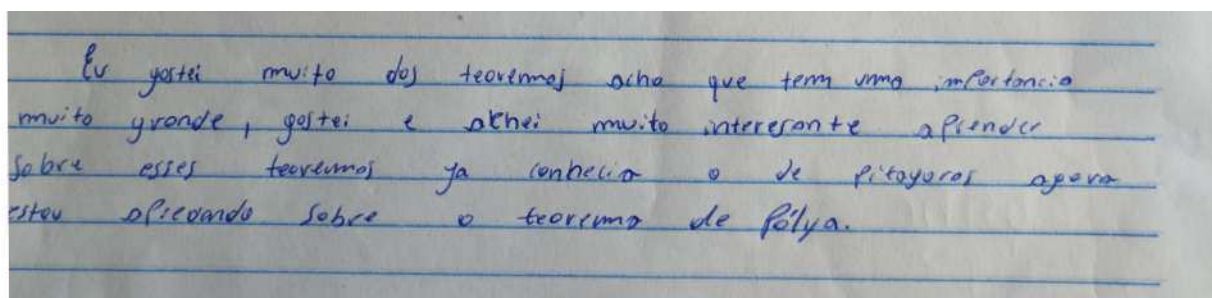 Eu gostei muito dos teoremas acho que tem uma importancia
muito grande, gostei e achei muito interesante aprender
sobre esses teoremas ya conhecia o de pitagoras agora
estou o teorema de Pólya.